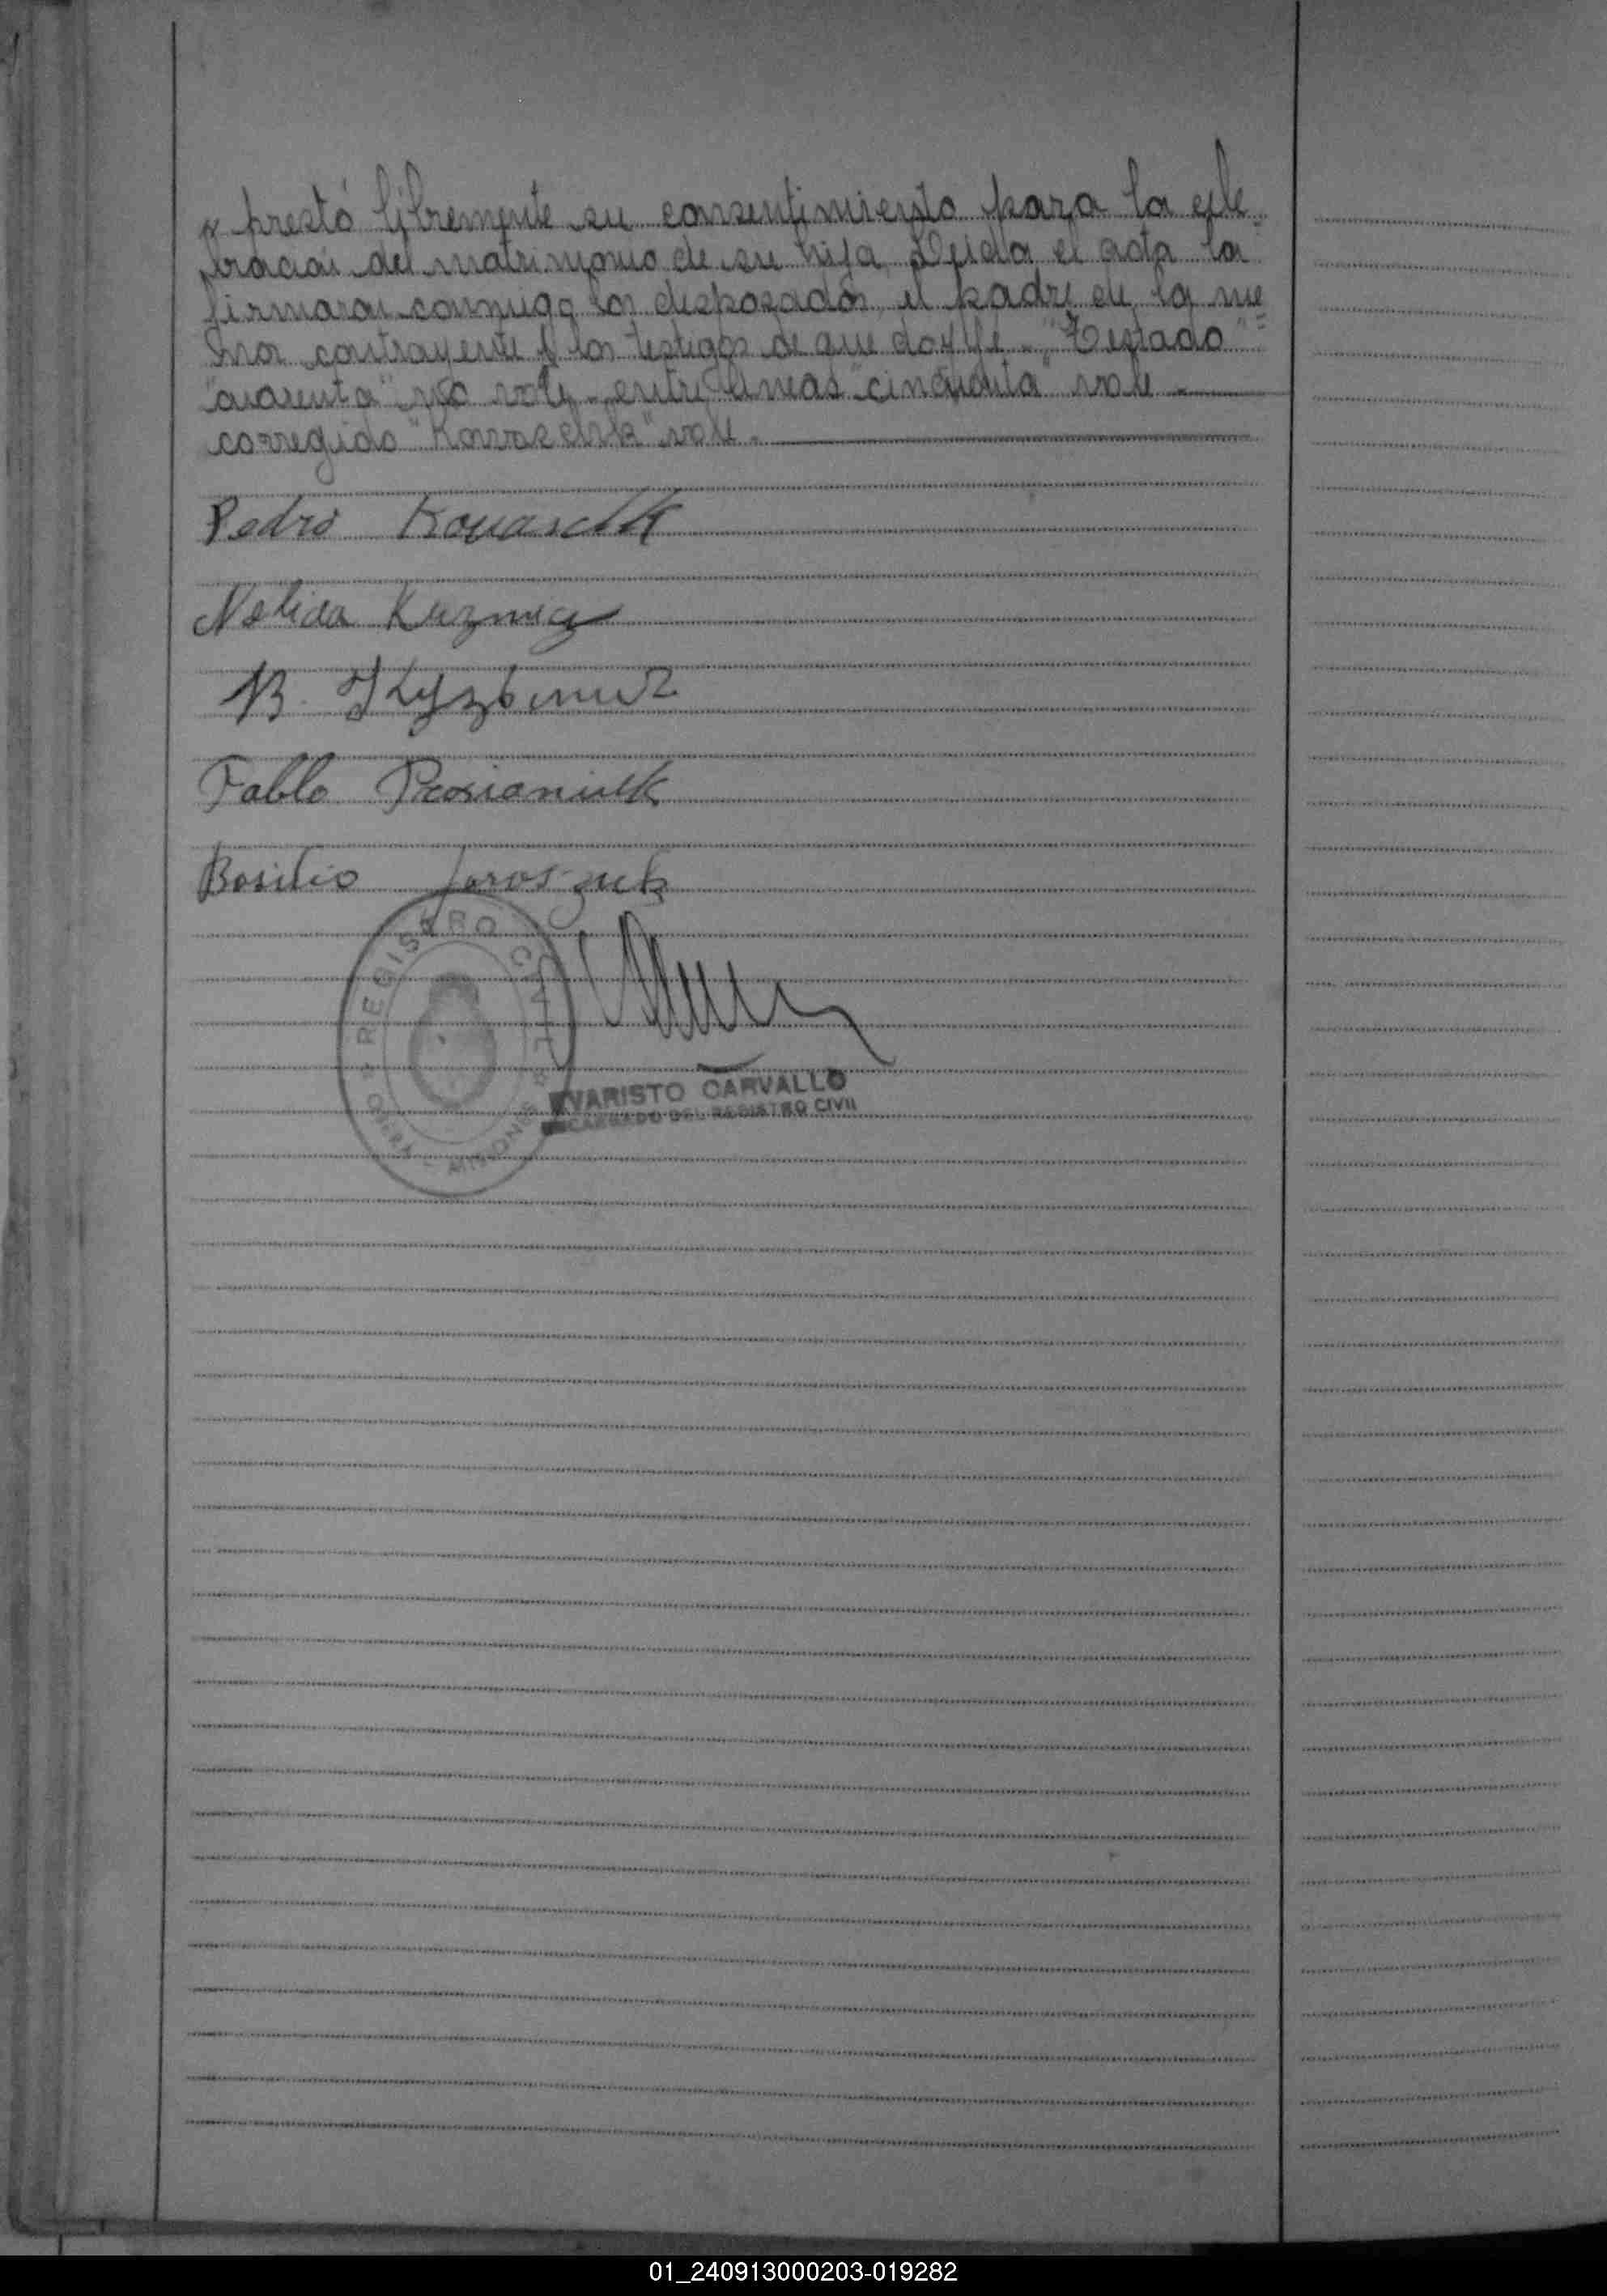 y prestó libremente su consentimiento para la cele-
bración del matrimonio de su hija. Leída el acta la
firmaron conmigo los desposados, el padre de la me-
nor contrayente y los testigos de que doy fe. "Testado"
"cuarenta" no vale - entre lineas "cincuenta" vale -
corregido "Kovaschik" vale. -
Pedro Kouaschk
Nelida Kuzmicz
B.
Pablo Prosianiuk
Basilio Jaroszuk
REGISTRO CIVIL
OBERA - MISIONES
EVARISTO CARVALLO
ENCARGADO DEL REGISTRO CIVIL
01_240913000203-019282